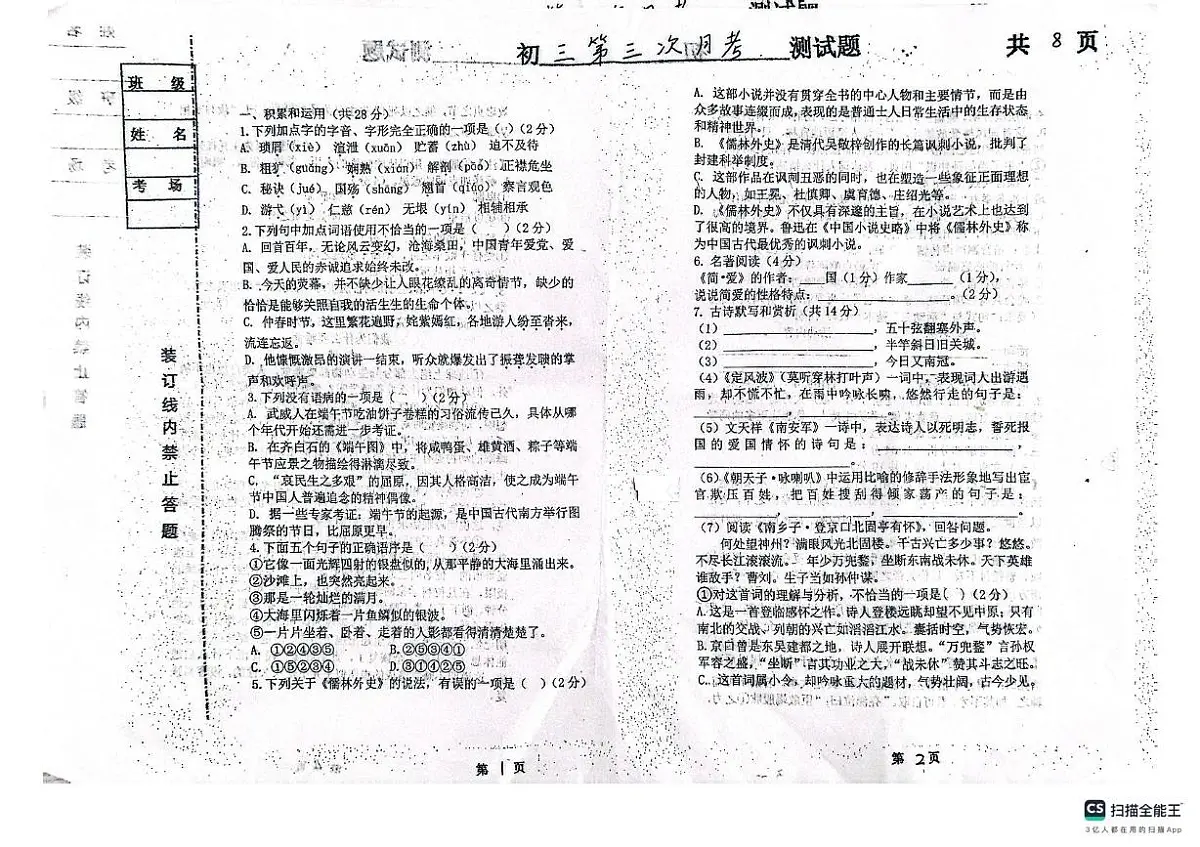 初三第三次月考 测试题
共 8 页
班 级
姓 名
考 场
装订线内禁止答题
一、积累和运用（共28分）
1.下列加点字的字音、字形完全正确的一项是（ ）（2分）
A. 琐屑（xiè） 渲泄（xuān） 贮蓄（zhù） 迫不及待
B. 粗犷（guǎng） 娴熟（xián） 解剖（pōō） 正襟危坐
C. 秘诀（jué） 国殇（shāng） 翘首（qiáo） 察言观色
D. 游弋（yì） 仁慈（rén） 无垠（yín） 相辅相承
2.下列句中加点词语使用不恰当的一项是（ ）（2分）
A. 回首百年，无论风云变幻，沧海桑田，中国青年爱党、爱
国、爱人民的赤诚追求始终未改。
B. 今天的荧幕，并不缺少让人眼花缭乱的离奇情节，缺少的
恰恰是能够关照自我的活生生的生命个体。
C. 仲春时节，这里繁花遍野，姹紫嫣红，各地游人纷至沓来，
流连忘返。
D. 他慷慨激昂的演讲一结束，听众就爆发出了振聋发聩的掌
声和欢呼声。
3.下列没有语病的一项是（ ）（2分）
A. 武威人在端午节吃油饼子卷糕的习俗流传已久，具体从哪
个年代开始还需进一步考证。
B. 在齐白石的《端午图》中，将咸鸭蛋、雄黄酒、粽子等端
午节应景之物描绘得淋漓尽致。
C. “哀民生之多艰”的屈原，因其人格高洁，使之成为端午
节中国人普遍追念的精神偶像。
D. 据一些专家考证：端午节的起源，是中国古代南方举行图
腾祭的节日，比屈原更早。
4.下面五个句子的正确语序是（ ）（2分）
①它像一面光辉四射的银盘似的，从那平静的大海里涌出来。
②沙滩上，也突然亮起来。
③那是一轮灿烂的满月。
④大海里闪烁着一片鱼鳞似的银波。
⑤一片片坐着、卧着、走着的人影都看得清清楚楚了。
A. ①②④③⑤ B.②⑤③④①
C. ①⑤②③④ D.③①④②⑤
5.下列关于《儒林外史》的说法，有误的一项是（ ）（2分）
第 1 页
A. 这部小说并没有贯穿全书的中心人物和主要情节，而是由
众多故事连缀而成，表现的是普通士人日常生活中的生存状态
和精神世界。
B. 《儒林外史》是清代吴敬梓创作的长篇讽刺小说，批判了
封建科举制度。
C. 这部作品在讽刺丑恶的同时，也在塑造一些象征正面理想
的人物，如王冕、杜慎卿、虞育德、庄绍光等。
D. 《儒林外史》不仅具有深邃的主旨，在小说艺术上也达到
了很高的境界。鲁迅在《中国小说史略》中将《儒林外史》称
为中国古代最优秀的讽刺小说。
6. 名著阅读（4分）
《简·爱》的作者：____国（1分）作家______（1分），
说说简爱的性格特点：________________。（2分）
7. 古诗默写和赏析（共14分）
（1）________________，五十弦翻塞外声。
（2）________________，半竿斜日旧关城。
（3）________________，今日又南冠。
（4）《定风波》（莫听穿林打叶声）一词中，表现词人出游遇
雨，却不慌不忙，在雨中吟咏长啸，悠然行走的句子是：
__________，__________。
（5）文天祥《南安军》一诗中，表达诗人以死明志，誓死报
国的爱国情怀的诗句是：________________，
________________。
（6）《朝天子·咏喇叭》中运用比喻的修辞手法形象地写出宦
官欺压百姓，把百姓搜刮得倾家荡产的句子是：
__________，__________，________________。
（7）阅读《南乡子·登京口北固亭有怀》，回答问题。
何处望神州？满眼风光北固楼。千古兴亡多少事？悠悠。
不尽长江滚滚流。 年少万兜鍪，坐断东南战未休。天下英雄
谁敌手？曹刘。生子当如孙仲谋。
①对这首词的理解与分析，不恰当的一项是（ ）（2分）
A.这是一首登临感怀之作。诗人登楼远眺却望不见中原；只有
南北的交战、列朝的兴亡如滔滔江水。囊括时空，气势恢宏。
B.京口曾是东吴建都之地，诗人展开联想。“万兜鍪”言孙权
军容之盛，“坐断”言其功业之大，“战未休”赞其斗志之旺。
C. 这首词属小令，却吟咏重大的题材，气势壮阔，古今少见。
第 2 页
CS 扫描全能王
3亿人都在用的扫描App